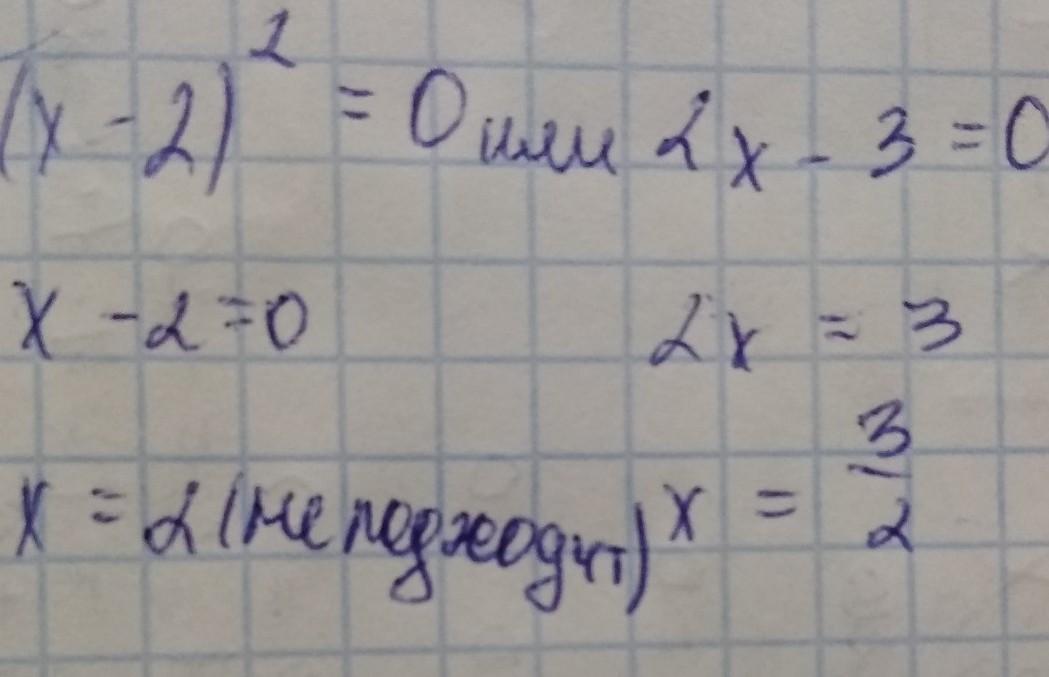 (x - 2)² = 0 или 2x - 3 = 0
x - 2 = 0 2x = 3
x = 2 (не подходит) x = 3/2